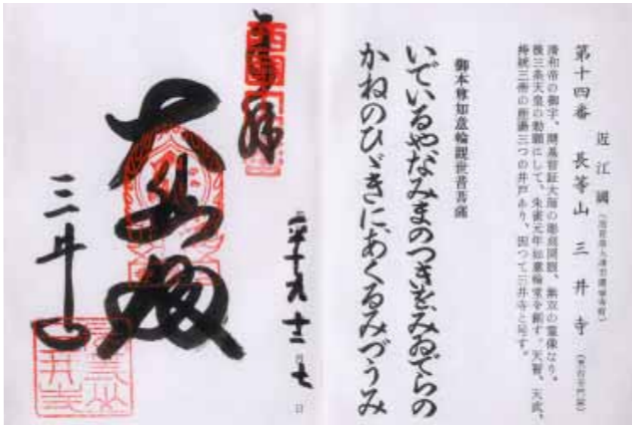 近江國
第十四番 長等山 三井寺
清和帝の御宇、開基智証大師の彫刻開眼、無双の霊像なり。
後三条天皇の勅願にして、朱雀元年如意輪堂を創す。天智、天武、
持統三帝の所湯三つの井戸あり、因つて三井寺と号す。
御本尊如意輪観世音菩薩
いでいるやなみまのつきをみゐでらの
かねのひゞきに、あくるみづうみ
奉拝
平十九 十二 月 七 日
大悲殿
三井寺